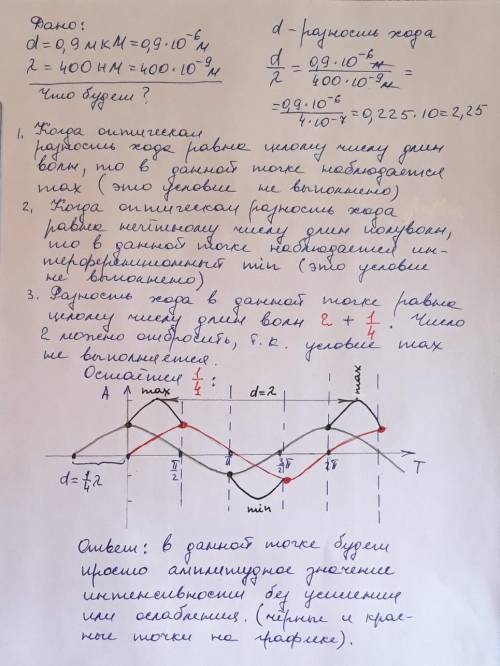 Дано:
d = 0,9 мкм = 0,9·10⁻⁶ м
λ = 400 нм = 400·10⁻⁹ м
Что будет?
d - разность хода
d/λ = 0,9·10⁻⁶ м / 400·10⁻⁹ м =
= 0,9·10⁻⁶ / 4·10⁻⁷ = 0,225·10 = 2,25
1. Когда оптическая
разность хода равна целому числу длин
волн, то в данной точке наблюдается
max (это условие не выполнено)
2. Когда оптическая разность хода
равна нечётному числу длин полуволн,
то в данной точке наблюдается ин-
терференционный min (это условие
не выполнено)
3. Разность хода в данной точке равна
целому числу длин волн 2 + 1/4. Число
2 можно отбросить, т.к. условие max
не выполняется.
Остаётся 1/4:
A
max
d = λ
max
d = 1/4 λ
π/2
π
3/2 π
2π
T
min
Ответ: в данной точке будет
просто амплитудное значение
интенсивности без усиления
или ослабления. (чёрные и крас-
ные точки на графике).